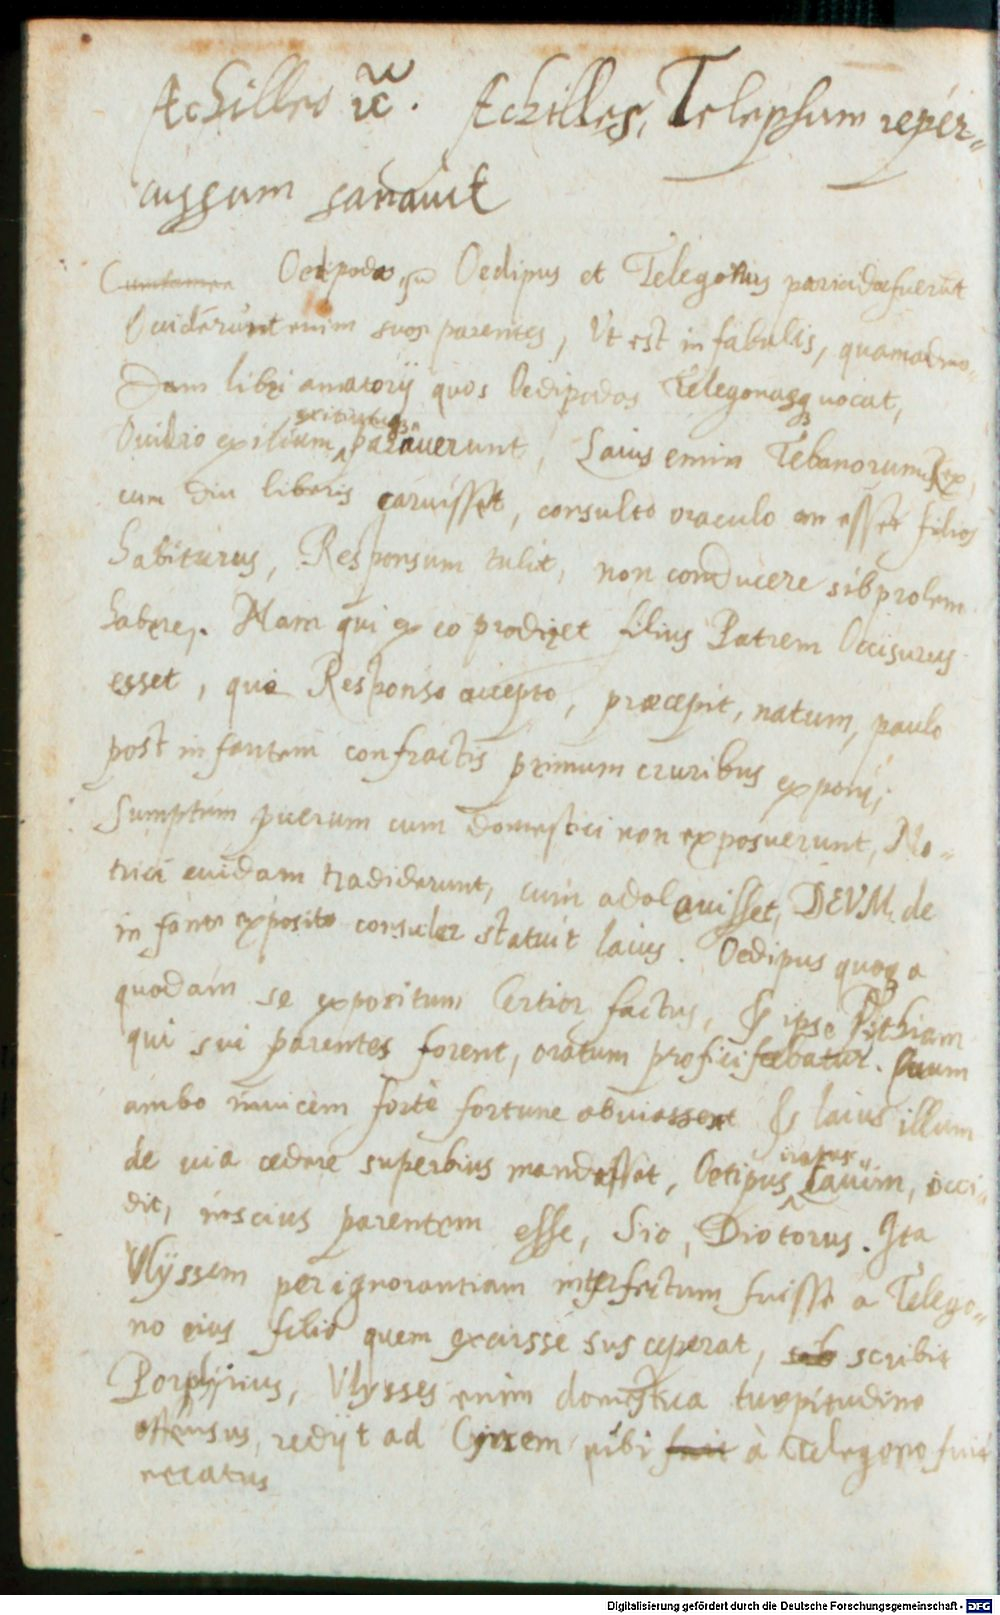 Achilles ꝛc. Achilles, Telephum reper-
cussum sanauit
Cumtamen Oedipodas, su Oedipus et Telegonus paricidæ fuerūt
Occiderunt enim suos parentes, Vt est in fabulis, quamadmo-
dam libri amatorij quos Oedipodas Telegonasqꝫ vocat,
exitiumqꝫ
Ouidio exilium ‸ parauerunt, Laius enim Tebanorum Rex,
cum diu liberis caruisset, consulto oraculo an esset filios
habiturus, Responsum tulit, non conducere sib prolem
habere. Nam qui ex eo prodiret filius Patrem Occisurus
esset, quo Responso accepto, præcepit, natum, paulo
post infantem confractis primum cruribus exponi;
Sumptum puerum cum domestici non exposuerunt, Nu-
trici cuidam tradiderunt, cum adolauisset, DEVM de
infante exposito consuler statuit laius. Oedipus quoqꝫ a
quodam se expositum Certior factus, & ipse Pithiam
qui sui parentes forent, oratum proficiscebatur. Quum
ambo inuicem forte fortune obuiassent & laius illum
de via cedere superbius mandasset, Oetipus ‸ Lauim, occi-
iratus
dit, inscius parentem esse, Sic, Diotorus. Ita
Vlÿssem per ignorantiam interfectum fuisse a Telego-
no eius filio quem ex circe susceperat, scribit
Porphÿrius, Vlysses enim domestica turpitudine
offensus, redijt ad Cyrcem vibi fuit à Telegono fuit
necatus
Digitalisierung gefördert durch die Deutsche Forschungsgemeinschaft - DFG